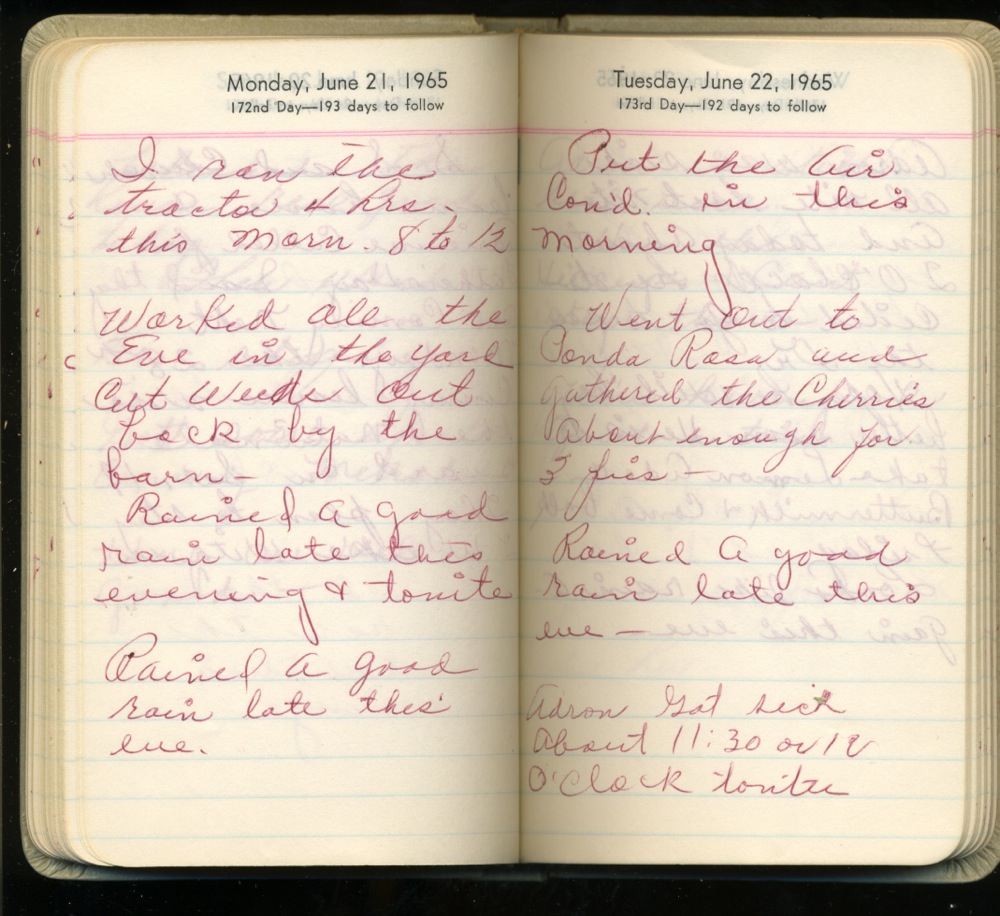 Monday, June 21, 1965
172nd Day—193 days to follow
I ran the
tractor 4 hrs.
this morn. 8 to 12
Worked all the
Eve in the yard
Cut Weeds out
back by the
barn—
Rained A good
rain late this
evening & tonite
Rained A good
rain late this
eve.
Tuesday, June 22, 1965
173rd Day—192 days to follow
Put the Air
Con'd. in this
morning
Went out to
Ponda Rosa and
gathered the Cherries
About enough for
3 pies—
Rained A good
rain late this
eve—
Adron Got sick
About 11:30 or 12
O'Clock tonite